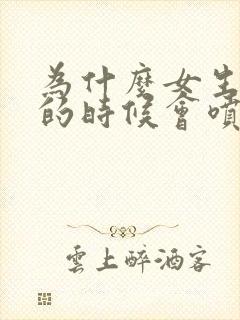 為什麼女生
的時候會噴
雲上醉酒客